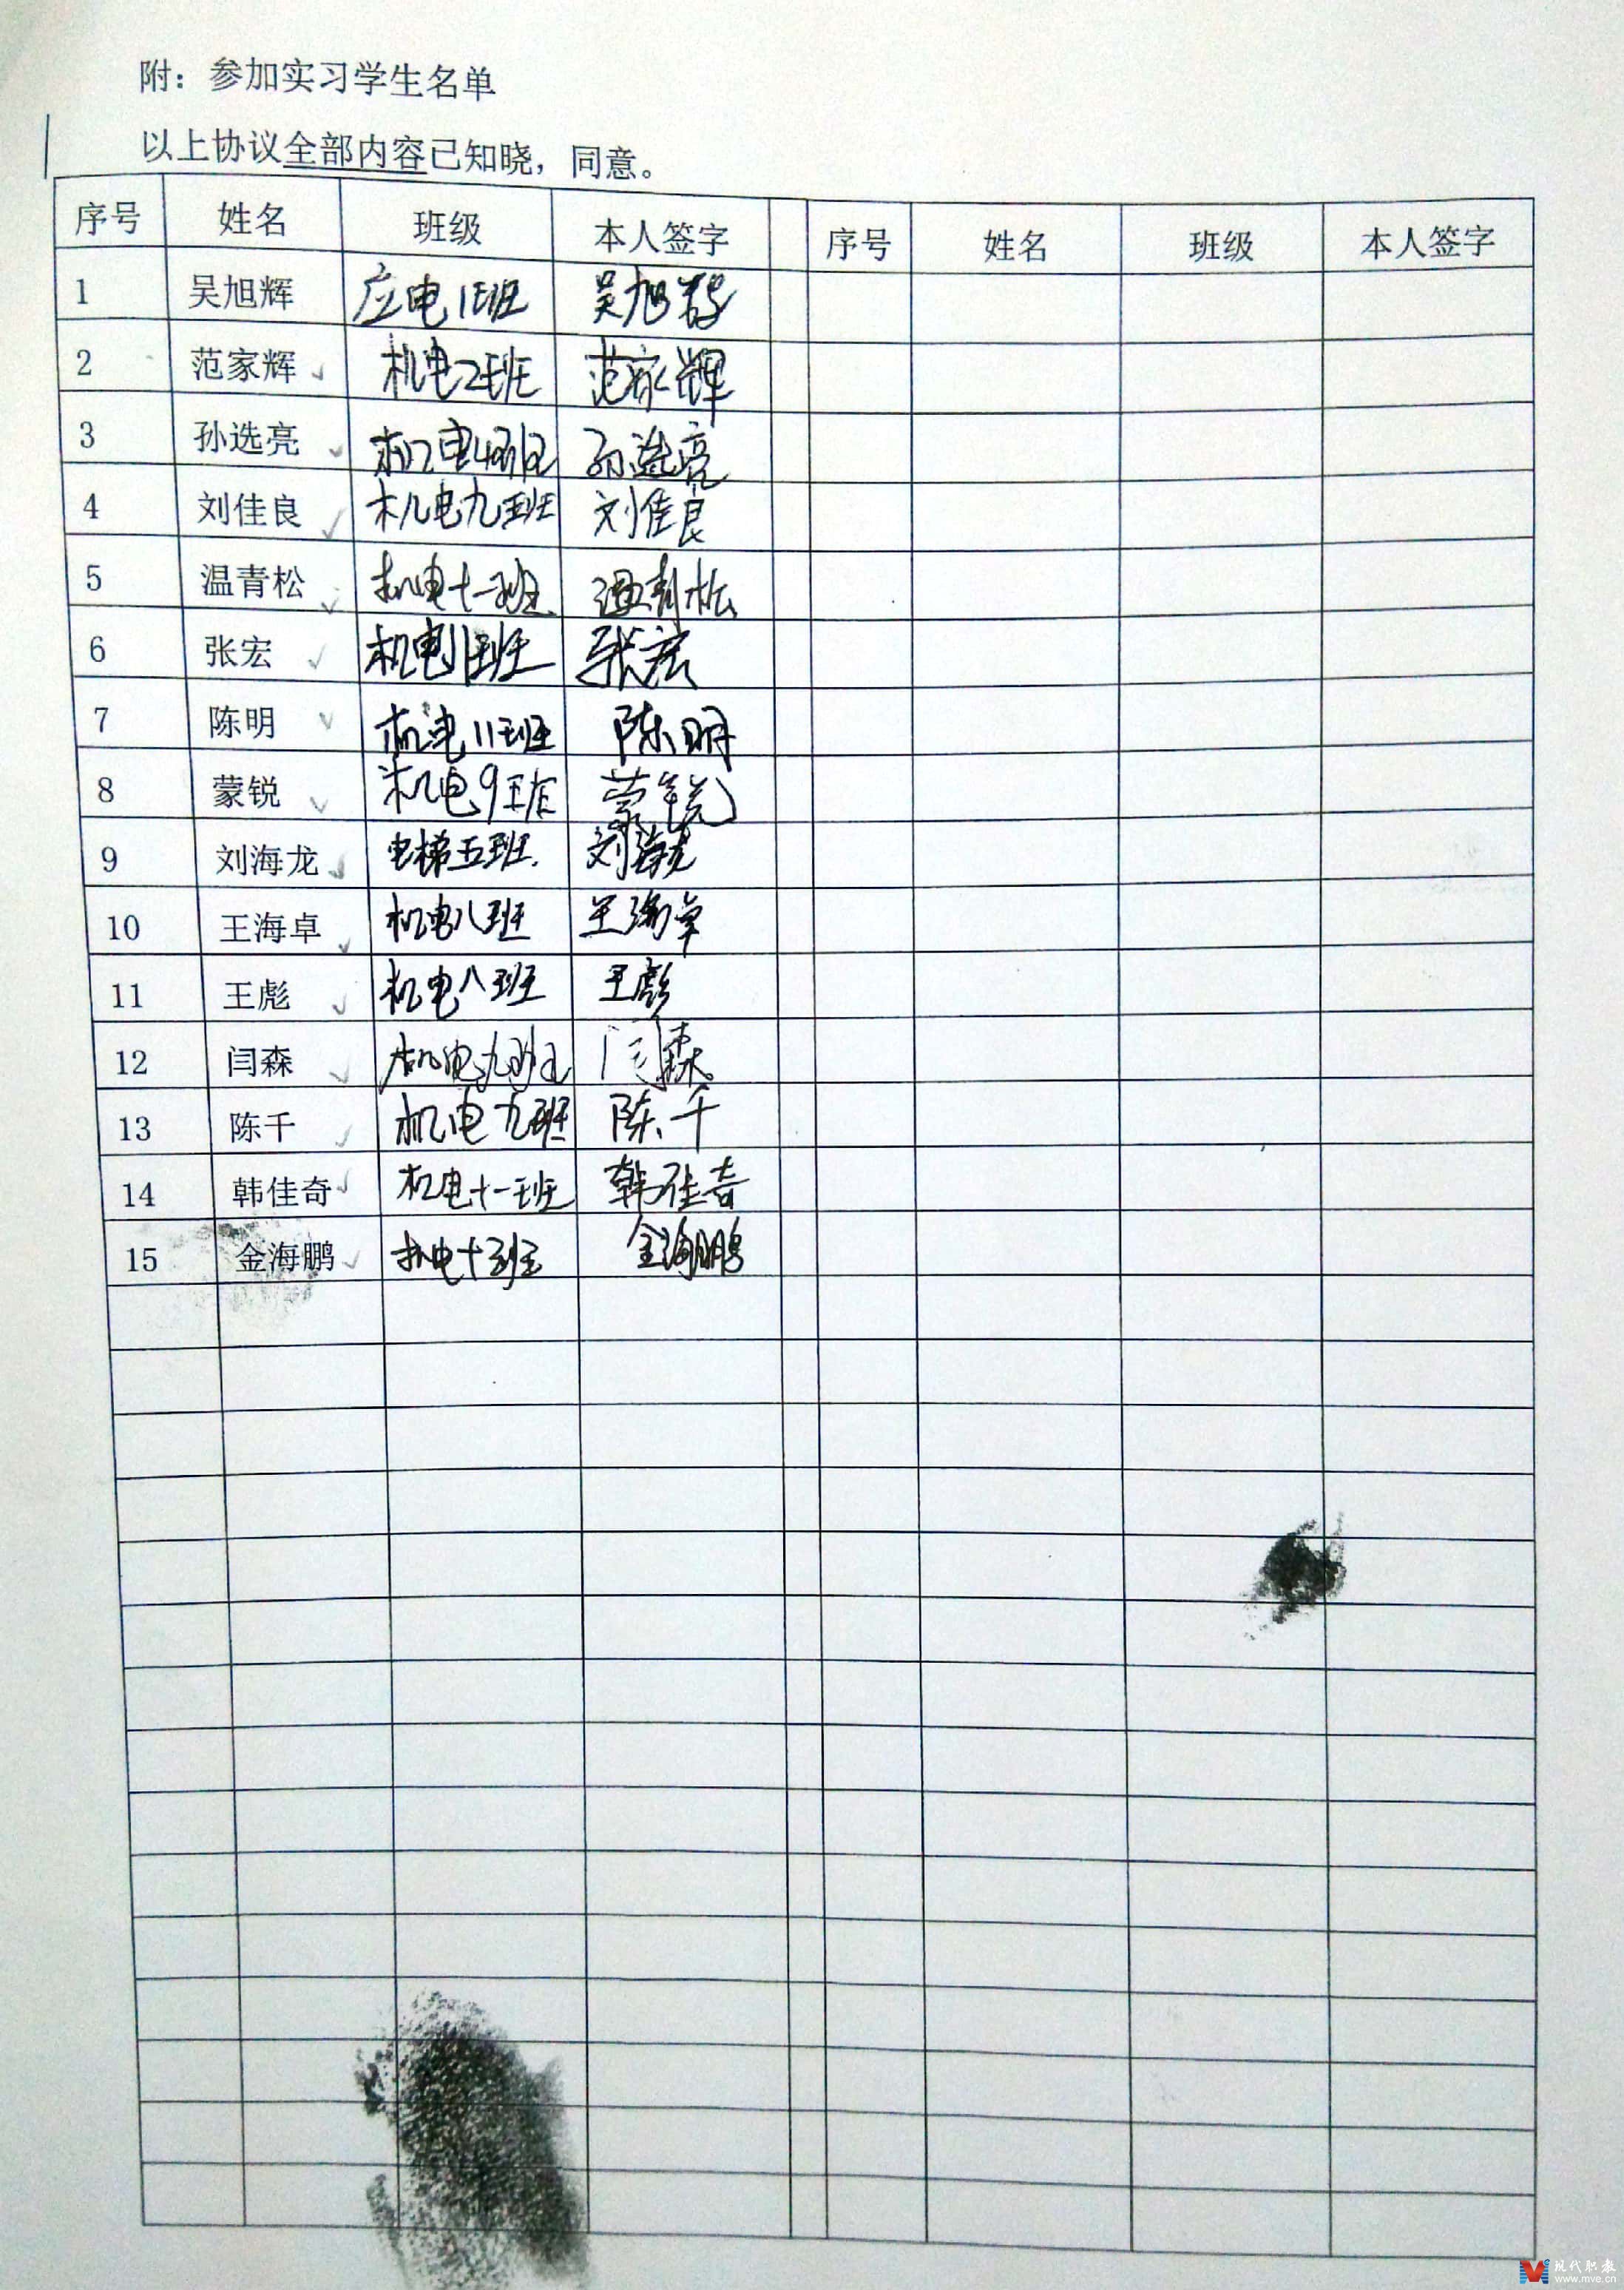 附：参加实习学生名单
以上协议全部内容已知晓，同意。
序号 姓名 班级 本人签字 序号 姓名 班级 本人签字
1 吴旭辉 应电1班 吴旭辉
2 范家辉 机电2班 范家辉
3 孙选亮 机电4班 孙选亮
4 刘佳良 机电九班 刘佳良
5 温青松 机电十一班 温青松
6 张宏 机电11班 张宏
7 陈明 机电11班 陈明
8 蒙锐 机电9班 蒙锐
9 刘海龙 电梯五班 刘海龙
10 王海卓 机电八班 王海卓
11 王彪 机电八班 王彪
12 闫森 机电九班 闫森
13 陈千 机电九班 陈千
14 韩佳奇 机电十一班 韩佳奇
15 金海鹏 机电十班 金海鹏
现代职教
www.mve.cn